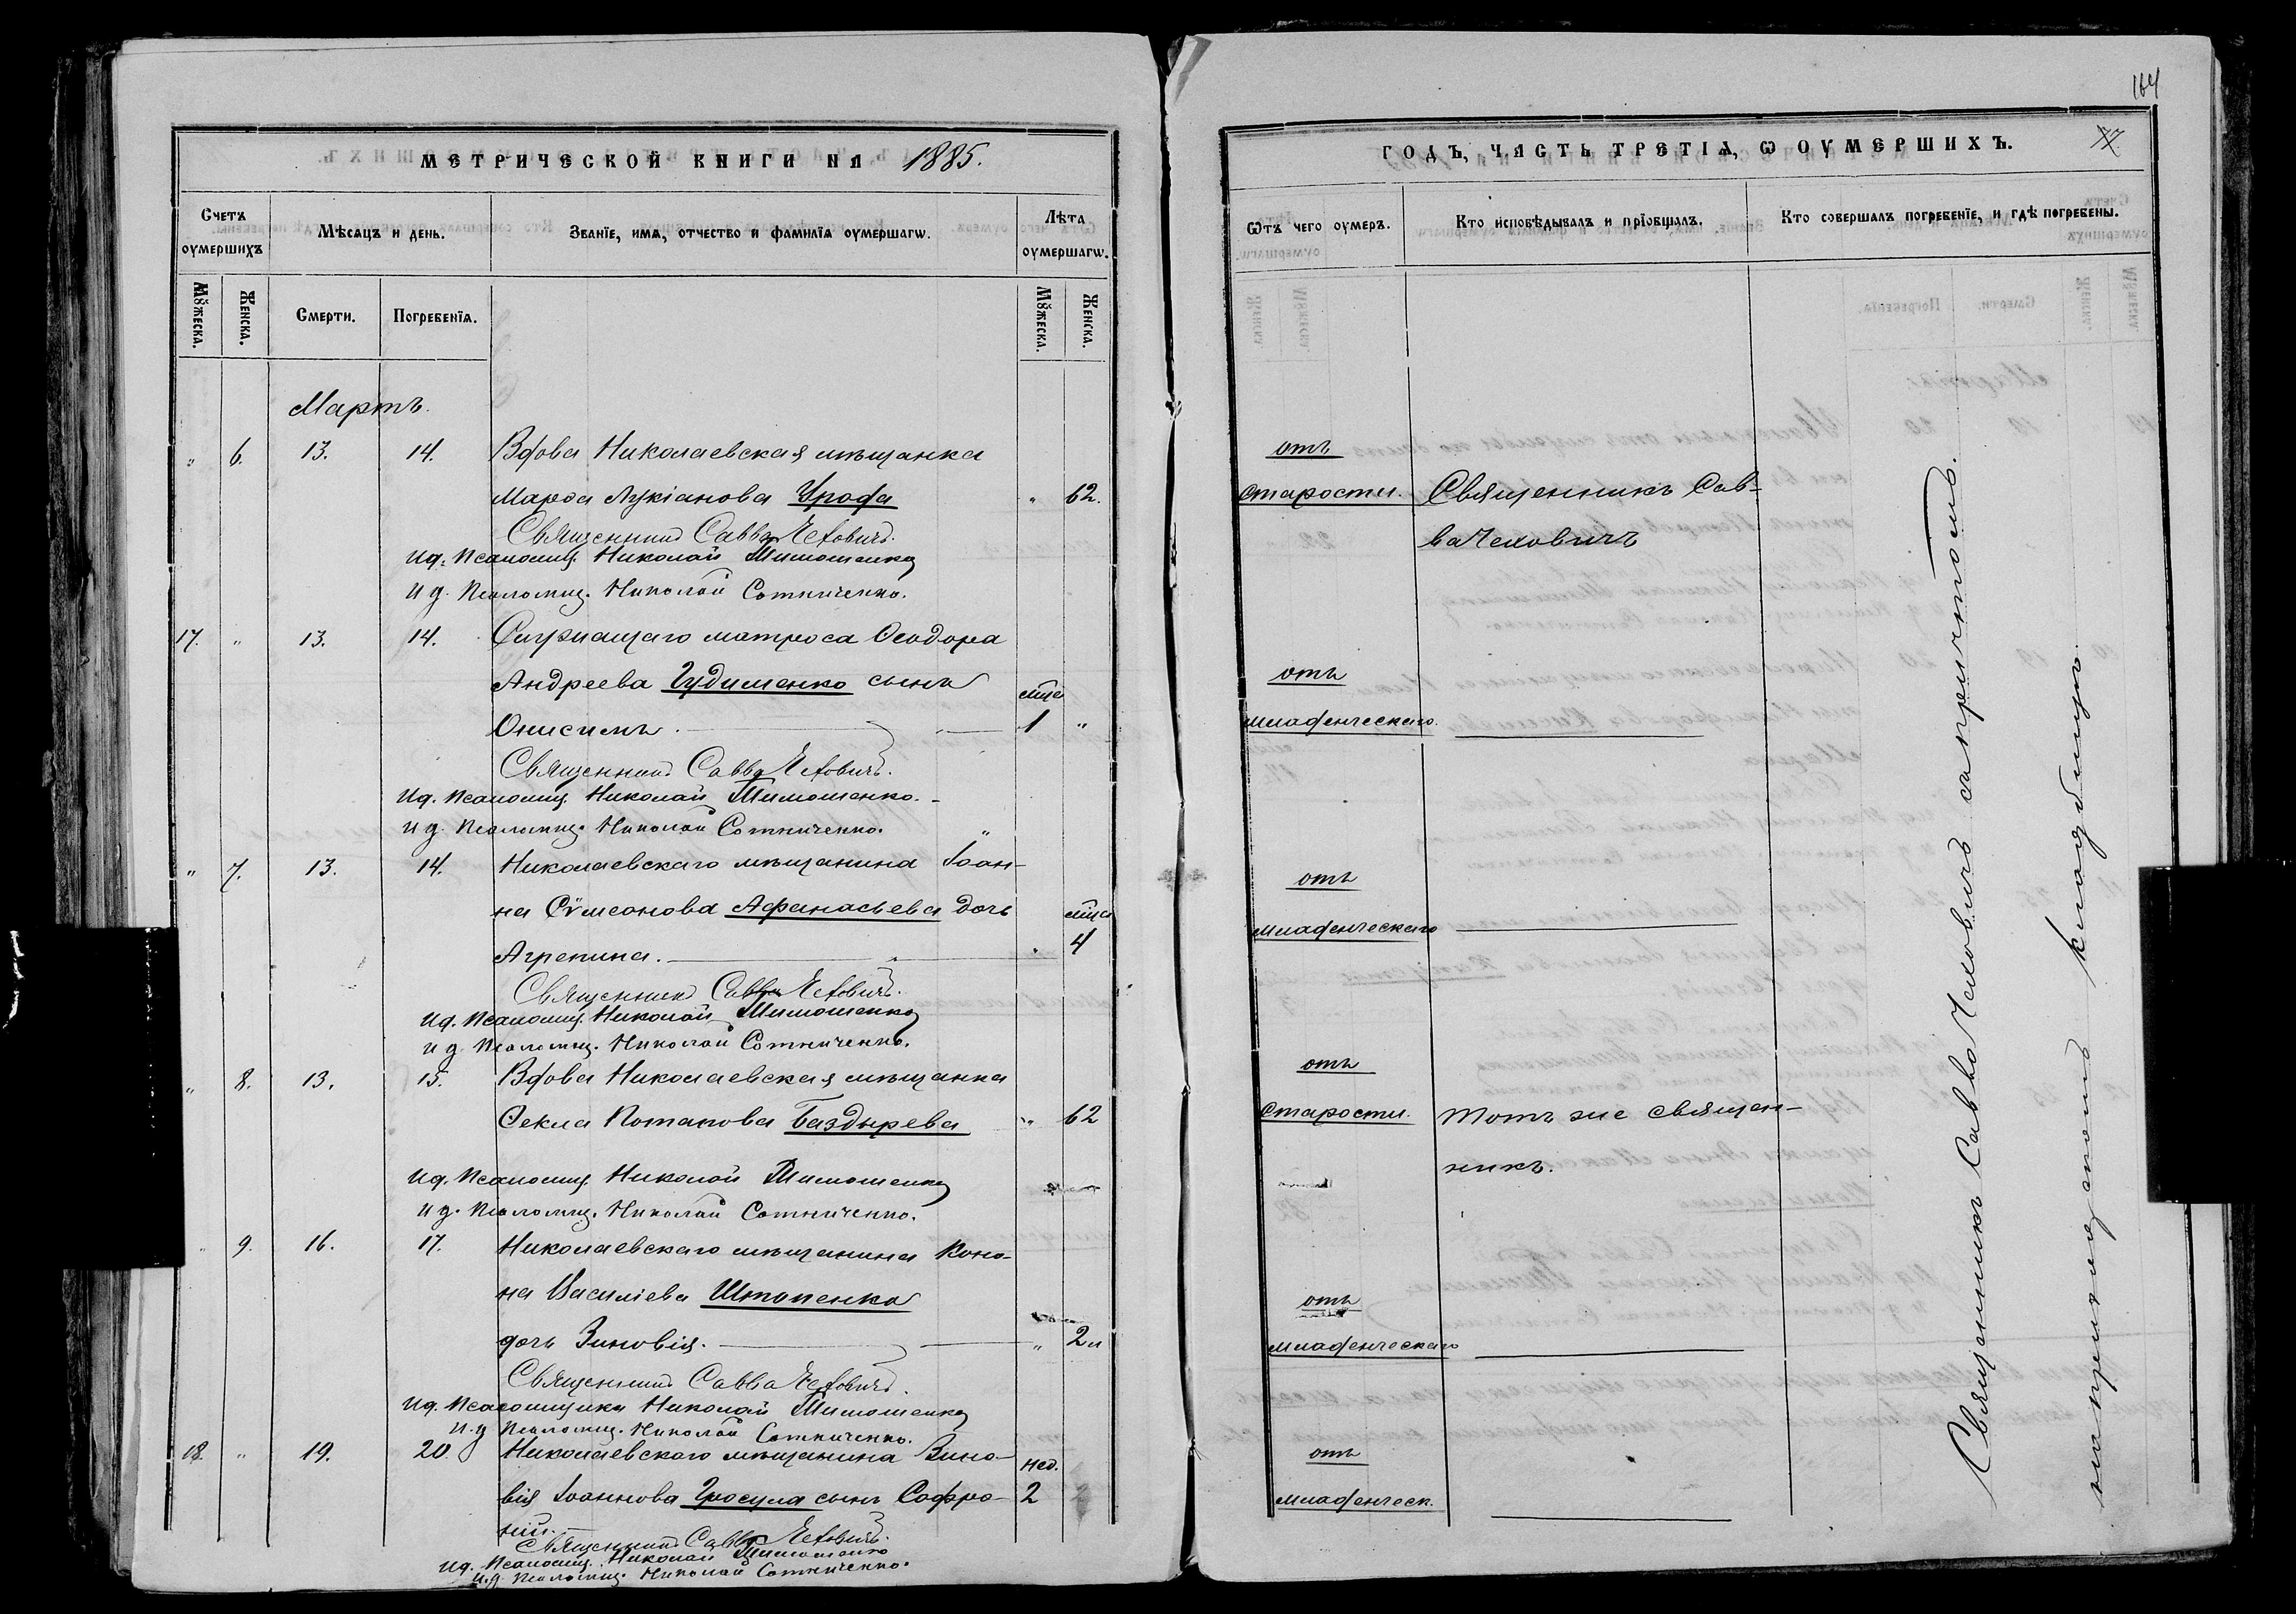 МЕТРИЧЕСКОЙ КНИГИ НА 1885.
Счетъ оумершихъ
Мѣсяцъ и день.
Званїе, имѧ, отчество и фамилїѧ оумершагѡ.
Лѣта оумершагѡ.
Мꙋжеска.
Женска.
Смерти.
Погребенїѧ.
Мꙋжеска.
Женска.
Мартъ.
" 6. 13. 14. Вдова Николаевская мѣщанка
Марѳа Лукіанова Урода " 62.
Священникъ Савва Чеховичъ.
И.д. Псаломщ. Николай Тимошенко
И д. Псаломщ. Николай Сотниченко.
17. " 13. 14. Служащаго матроса Ѳеодора
Андреева Гудименко сынъ мѣс.
Онисимъ. 1 "
Священникъ Савва Чеховичъ.
И.д. Псаломщ. Николай Тимошенко.
И д. Псаломщ. Николай Сотниченко.
" 7. 13. 14. Николаевскаго мѣщанина Іоан-
на Сѵмеонова Афанасьева дочь мѣса
Агрепина. " 4
Священникъ Савва Чеховичъ.
И.д. Псаломщ. Николай Тимошенко
И д. Псаломщ. Николай Сотниченко.
" 8. 13. 15. Вдова Николаевская мѣщанка
Ѳекла Потапова Баздырева " 62
И.д. Псаломщ. Николай Тимошенко
И д. Псаломщ. Николай Сотниченко.
" 9. 16. 17. Николаевскаго мѣщанина Коно-
на Василіева Штопенко
дочь Зиновія. " 2
Священникъ Савва Чеховичъ.
И.д. Псаломщика Николай Тимошенко
И.д Псаломщ. Николай Сотниченко.
18. " 19. 20. Николаевскаго мѣщанина Зино- нед.
вія Іоаннова Гросула сынъ Софро- 2
ній.
Священникъ Савва Чеховичъ.
И.д. Псаломщ. Николай Тимошенко
И.д. Псаломщ. Николай Сотниченко.
164
ГОДЪ, ЧАСТЬ ТРЕТІѦ, Ѡ ОУМЕРШИХЪ.
77
Ѿтъ чего оумеръ.
Кто исповѣдывалъ и прїобщалъ.
Кто совершалъ погребенїе, и гдѣ погребены.
отъ
старости. Священникъ Сав-
ва Чеховичъ
отъ
младенческаго.
отъ
младенческаго
отъ
старости. Тотъ же священ-
никъ.
отъ
младенческаго
отъ
младенческ.
Священникъ Савва Чеховичъ съ причтомъ.
на приходскомъ кладбищѣ.